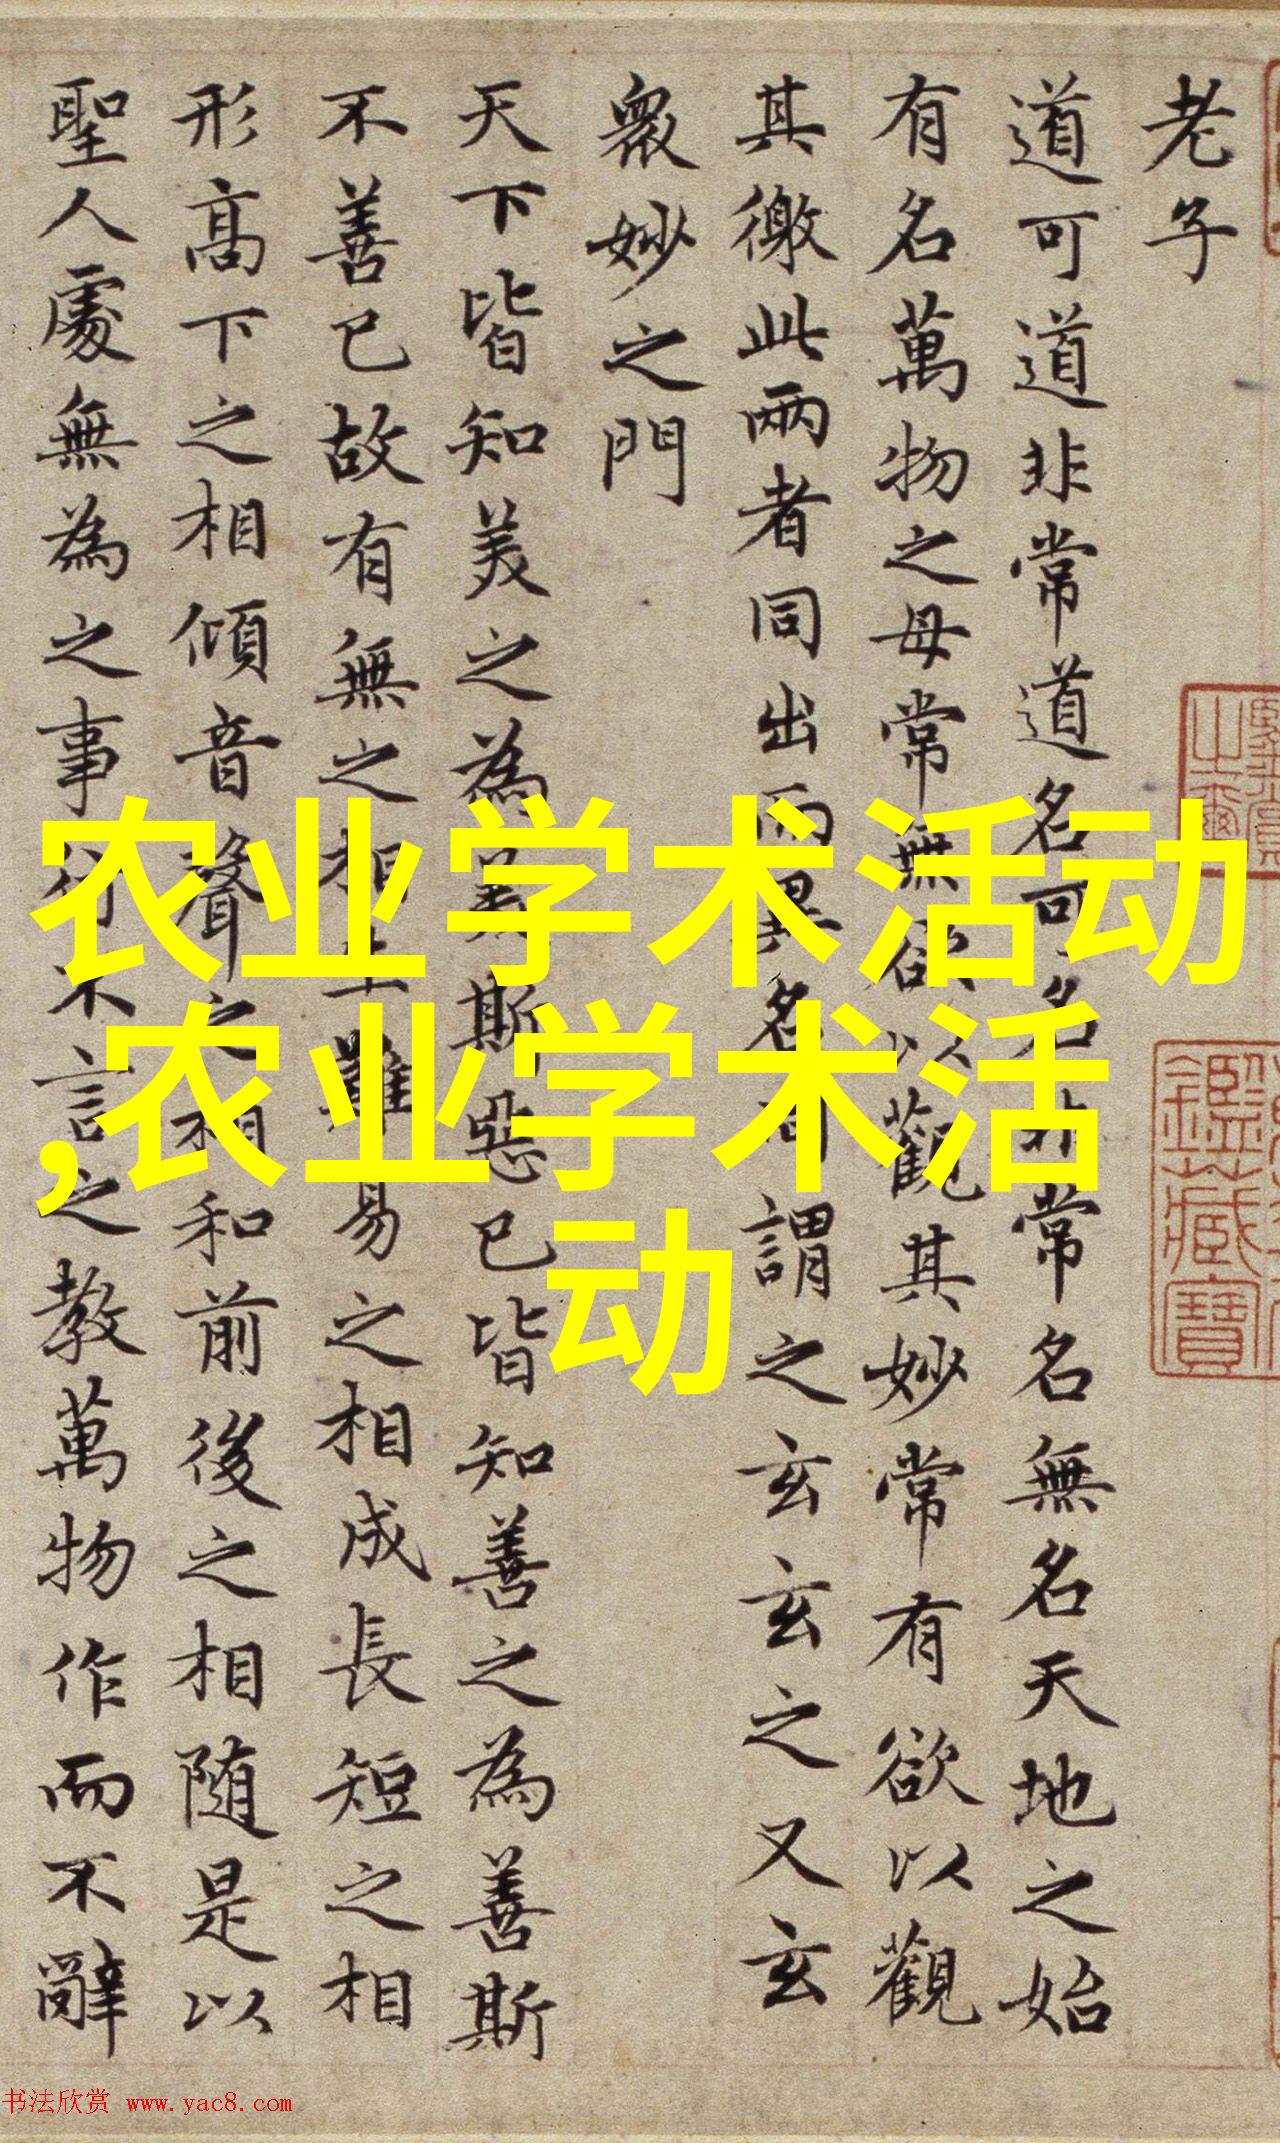 老子
道可道非常道名可名非常名無名天地之始
有名萬物之母常無欲以觀其妙常有欲以觀
其徼此兩者同出而異名同謂之玄玄之又玄
衆妙之門
天下皆知美之為美斯惡已皆知善之為善斯
不善已故有無之相生難易之相成長短之相
形高下之相傾音聲之相和前後之相随是以
聖人處無為之事行不言之教萬物作而不辭
农业学术活动
,农业学术活
动
鑑藏寶
书法欣赏 www.yac8.com